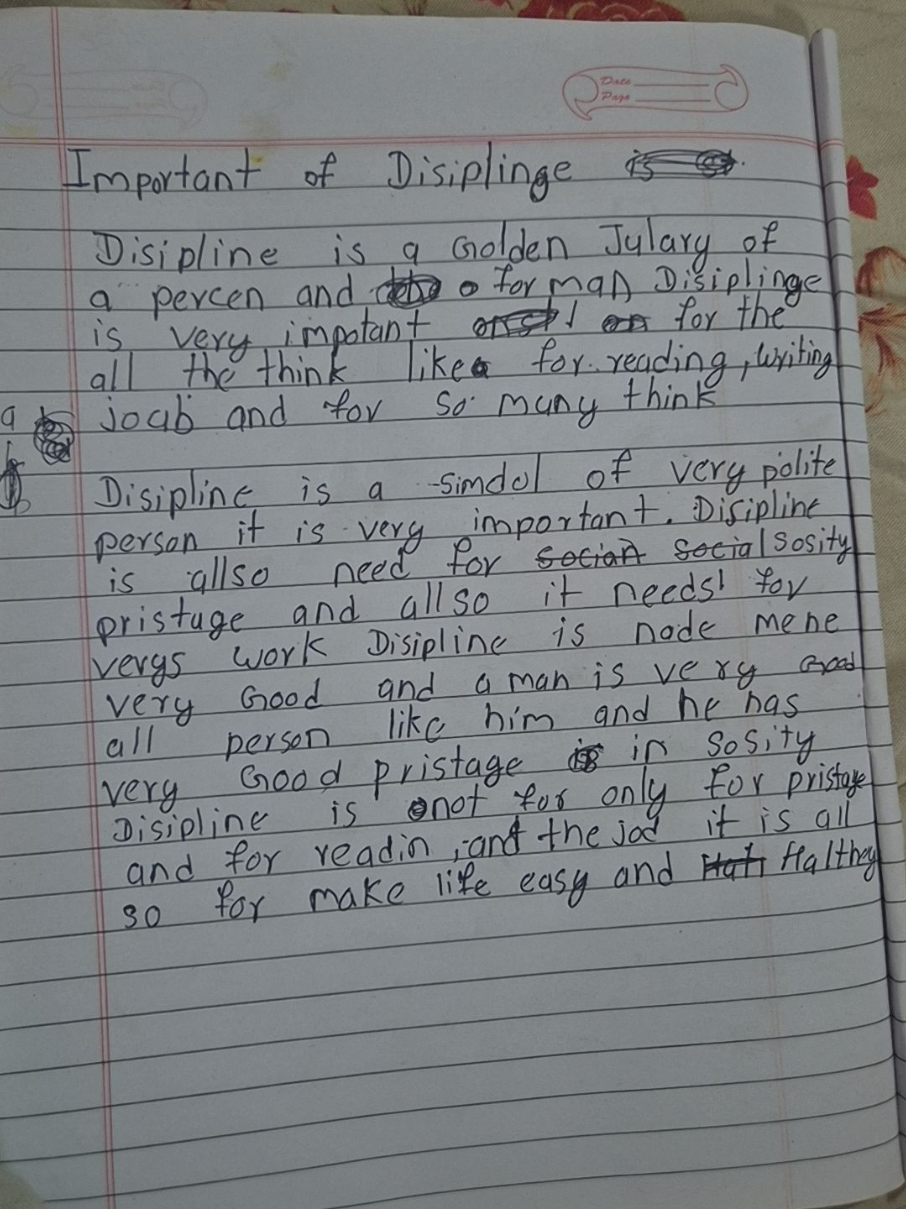 Date
Page
Important of Disiplinge
Disipline is a Golden Julary of
a percen and for man Disiplinge
is very impotant for the
all the think like for reading, writing
joab and for so many think
Disipline is a simdol of very polite
person it is very important. Disipline
is allso need for social sosity
pristuge and allso it needs for
vergs work Disipline is node mene
very Good and a man is very Good
all person like him and he has
very Good pristage in sosity
Disipline is not for only for pristage
and for readin, and the jod it is all
so for make life easy and Halthey